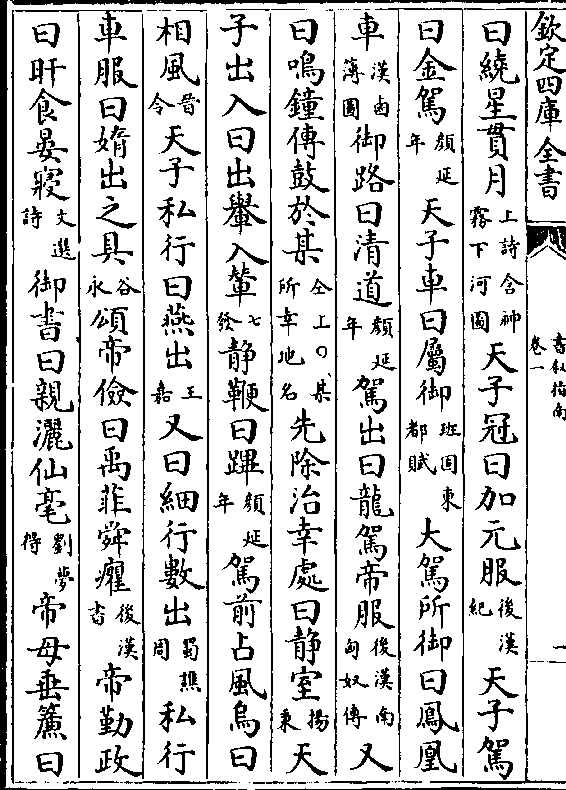 欽定四庫全書
書叙指南
卷一
一
曰繞星貫月上詩含神霧下河圖天子冠曰加元服後漢紀天子駕
曰金駕顔延年天子車曰屬御班固東都賦大駕所御曰鳳凰
車漢鹵簿圖御路曰清道顔延年駕出曰龍駕帝服後漢南匈奴傳又
曰鳴鐘傳鼓於某仝上○某所幸地名先除治幸處曰静室揚秉天
子出入曰出轝入輦七發静鞭曰蹕顔延年駕前占風烏曰
相風晉令天子私行曰燕出王嘉又曰細行數出蜀譙周私行
車服曰媠出之具谷永頌帝儉曰禹菲舜癯後漢書帝勤政
曰旰食晏寢文選詩御書曰親灑仙毫劉夢得帝母垂簾曰